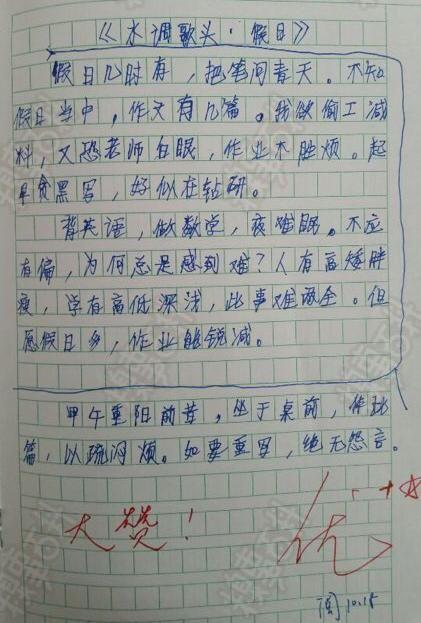 《水调歌头·假日》
假日几时有，把笔问青天。不知
假日当中，作文有几篇。我欲偷工减
料，又恐老师白眼，作业不胜烦。起
早贪黑写，好似在钻研。
背英语，做数学，夜难眠。不应
有偏，为何总是感到难？人有高矮胖
瘦，学有高低深浅，此事难两全。但
愿假日多，作业能锐减。
甲午重阳前昔，坐于桌前，作此
篇，以疏闷烦。如要重写，绝无怨言。
大赞！
优+☆
阅 10.15